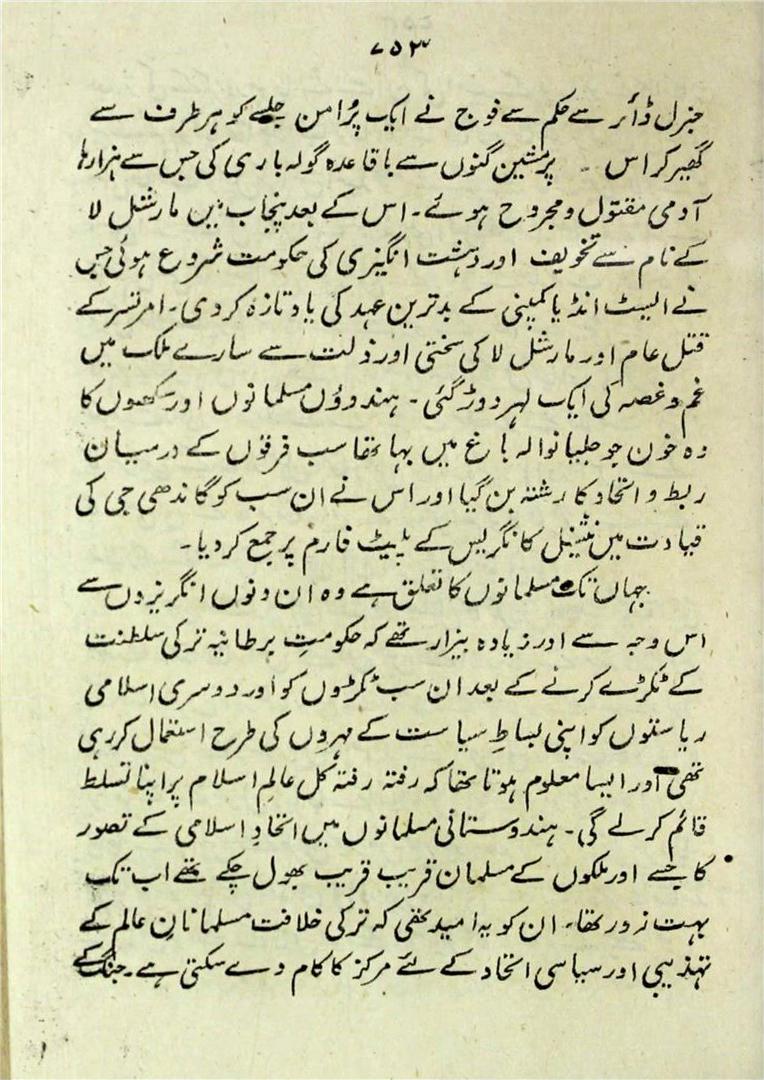 ۷۵۳
جنرل ڈائر سے حکم سے فوج نے ایک پُرامن جلسے کو ہر طرف سے
گھیر کر اس ۔ پر مشین گنوں سے باقاعدہ گولہ باری کی جس سے ہزارہا
آدمی مقتول و مجروح ہوئے۔ اس کے بعد پنجاب میں مارشل لا
کے نام سے تخویف اور دہشت انگیزی کی حکومت شروع ہوئی جس
نے ایسٹ انڈیا کمپنی کے بدترین عہد کی یاد تازہ کردی۔ امرتسر کے
قتل عام اور مارشل لا کی سختی اور ذلت سے سارے ملک میں
غم و غصہ کی ایک لہر دوڑ گئی۔ ہندوؤں مسلمانوں اور سکھوں کا
وہ خون جو جلیانوالہ باغ میں بہا تھا سب فرقوں کے درمیان
ربط و اتحاد کا رشتہ بن گیا اور اس نے ان سب کو گاندھی جی کی
قیادت میں نیشنل کانگریس کے پلیٹ فارم پر جمع کردیا۔
جہاں تک مسلمانوں کا تعلق ہے وہ ان دنوں انگریزوں سے
اس وجہ سے اور زیادہ بیزار تھے کہ حکومتِ برطانیہ ترکی سلطنت
کے ٹکڑے کرنے کے بعد ان سب ٹکڑوں کو اور دوسری اسلامی
ریاستوں کو اپنی بساطِ سیاست کے مہروں کی طرح استعمال کر رہی
تھی اور ایسا معلوم ہوتا تھا کہ رفتہ رفتہ کل عالمِ اسلام پر اپنا تسلط
قائم کر لے گی۔ ہندوستانی مسلمانوں میں اتحادِ اسلامی کے تصور
کا جسے اور ملکوں کے مسلمان قریب قریب بھول چکے تھے اب تک
بہت زور تھا۔ ان کو یہ امید تھی کہ ترکی خلافت مسلمانانِ عالم کے
تہذیبی اور سیاسی اتحاد کے لئے مرکز کا کام دے سکتی ہے۔ جنگ کے